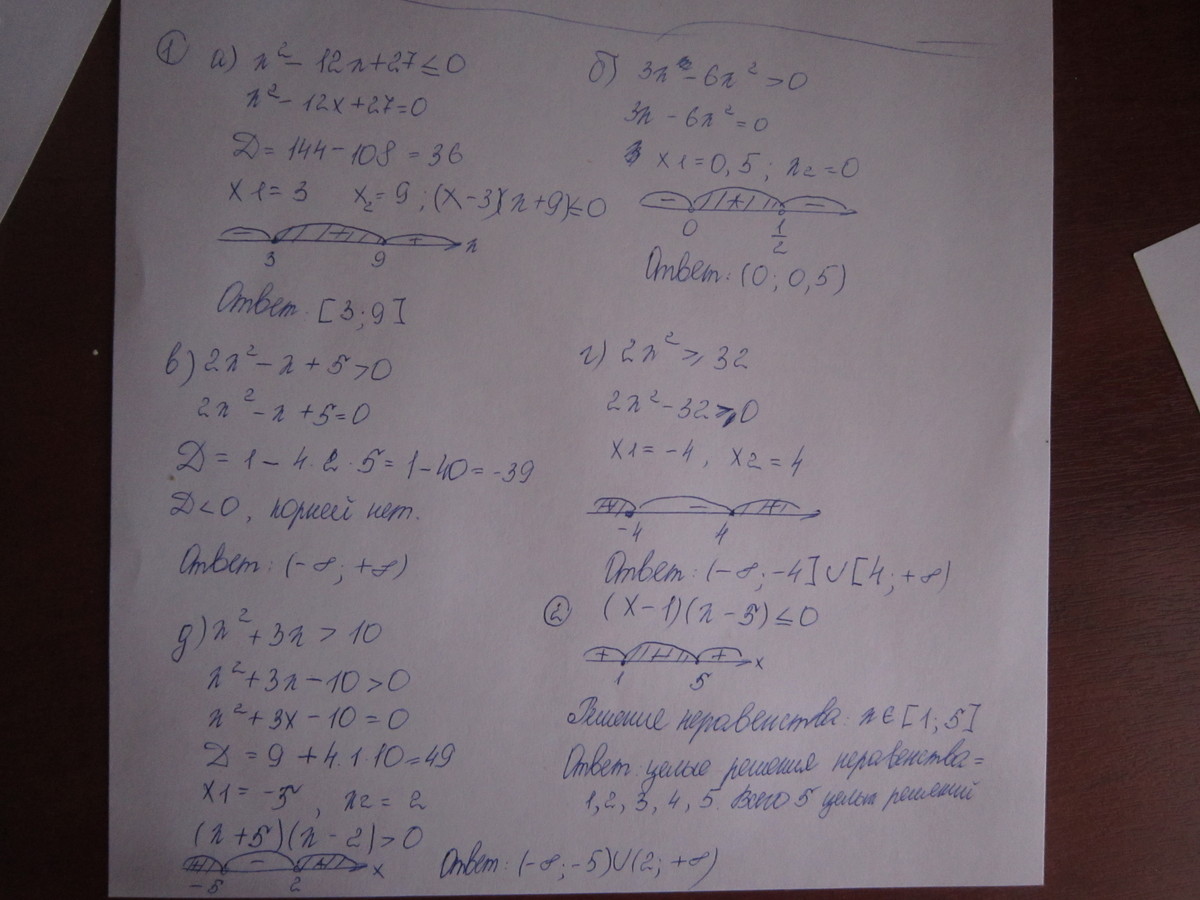 1 а) x² - 12x + 27 ≤ 0
x² - 12x + 27 = 0
D = 144 - 108 = 36
x1 = 3 x₂ = 9 ; (x - 3)(x + 9) ≤ 0
- + + x
3 9
Ответ: [3; 9]
б) 3x - 6x² > 0
3x - 6x² = 0
x1 = 0,5 ; x₂ = 0
- + -
0 1/2
Ответ: (0; 0,5)
в) 2x² - x + 5 > 0
2x² - x + 5 = 0
D = 1 - 4 · 2 · 5 = 1 - 40 = -39
D < 0, корней нет.
Ответ: (-∞; +∞)
г) 2x² ≥ 32
2x² - 32 ≥ 0
x1 = -4, x2 = 4
+ - +
-4 4
Ответ: (-∞; -4] ∪ [4; +∞)
д) x² + 3x > 10
x² + 3x - 10 > 0
x² + 3x - 10 = 0
D = 9 + 4 · 1 · 10 = 49
x1 = -5, x2 = 2
(x + 5)(x - 2) > 0
+ - + x
-5 2
Ответ: (-∞; -5) ∪ (2; +∞)
2 (x - 1)(x - 5) ≤ 0
+ - + x
1 5
Решение неравенства: x ∈ [1; 5]
Ответ: целые решения неравенства =
1, 2, 3, 4, 5. Всего 5 целых решений